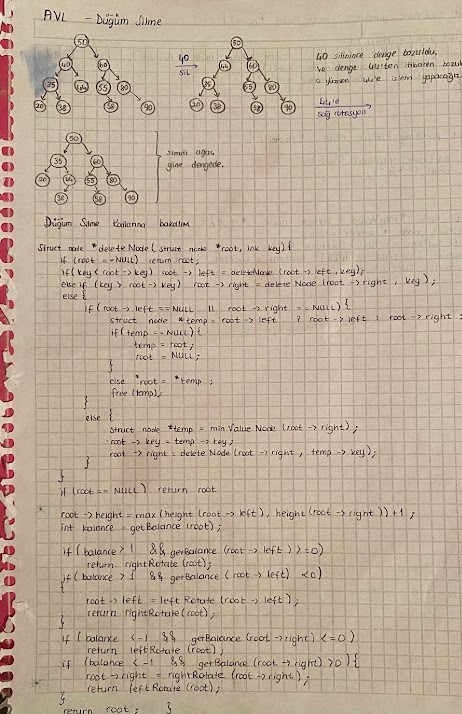 AVL - Düğüm Silme
50
40 60
35 44 55 80
20 38 58 90
40
SİL
50
44 60
35 55 80
20 38 58 90
40 silinince denge bozuldu,
ve denge 44'ten itibaren bozuk
o yüzden 44'e işlem yapacağız
44'e
sağ rotasyon
50
35 60
20 44 55 80
38 58 90
Şimdi ağaç
yine dengede.
Düğüm Silme Kodlarına bakalım
Struct node *deleteNode (struct node *root, int key) {
if (root == NULL) return root;
if (key < root -> key) root -> left = deleteNode (root -> left, key);
else if (key > root -> key) root -> right = delete Node (root -> right, key);
else {
if (root -> left == NULL || root -> right == NULL) {
struct node *temp = root -> left ? root -> left : root -> right;
if (temp == NULL) {
temp = root;
root = NULL;
}
else *root = *temp;
free (temp);
}
else {
struct node *temp = min Value Node (root -> right);
root -> key = temp -> key;
root -> right = delete Node (root -> right, temp -> key);
}
}
if (root == NULL) return root
root -> height = max (height (root -> left), height (root -> right)) + 1;
int balance = getBalance (root);
if (balance > 1 && getBalance (root -> left) >= 0)
return rightRotate (root);
if (balance > 1 && getBalance (root -> left) < 0)
{
root -> left = left Rotate (root -> left);
return rightRotate (root);
}
if (balance < -1 && getBalance (root -> right) <= 0)
return leftRotate (root);
if (balance < -1 && getBalance (root -> right) > 0) {
root -> right = rightRotate (root -> right);
return leftRotate (root);
}
return root; }